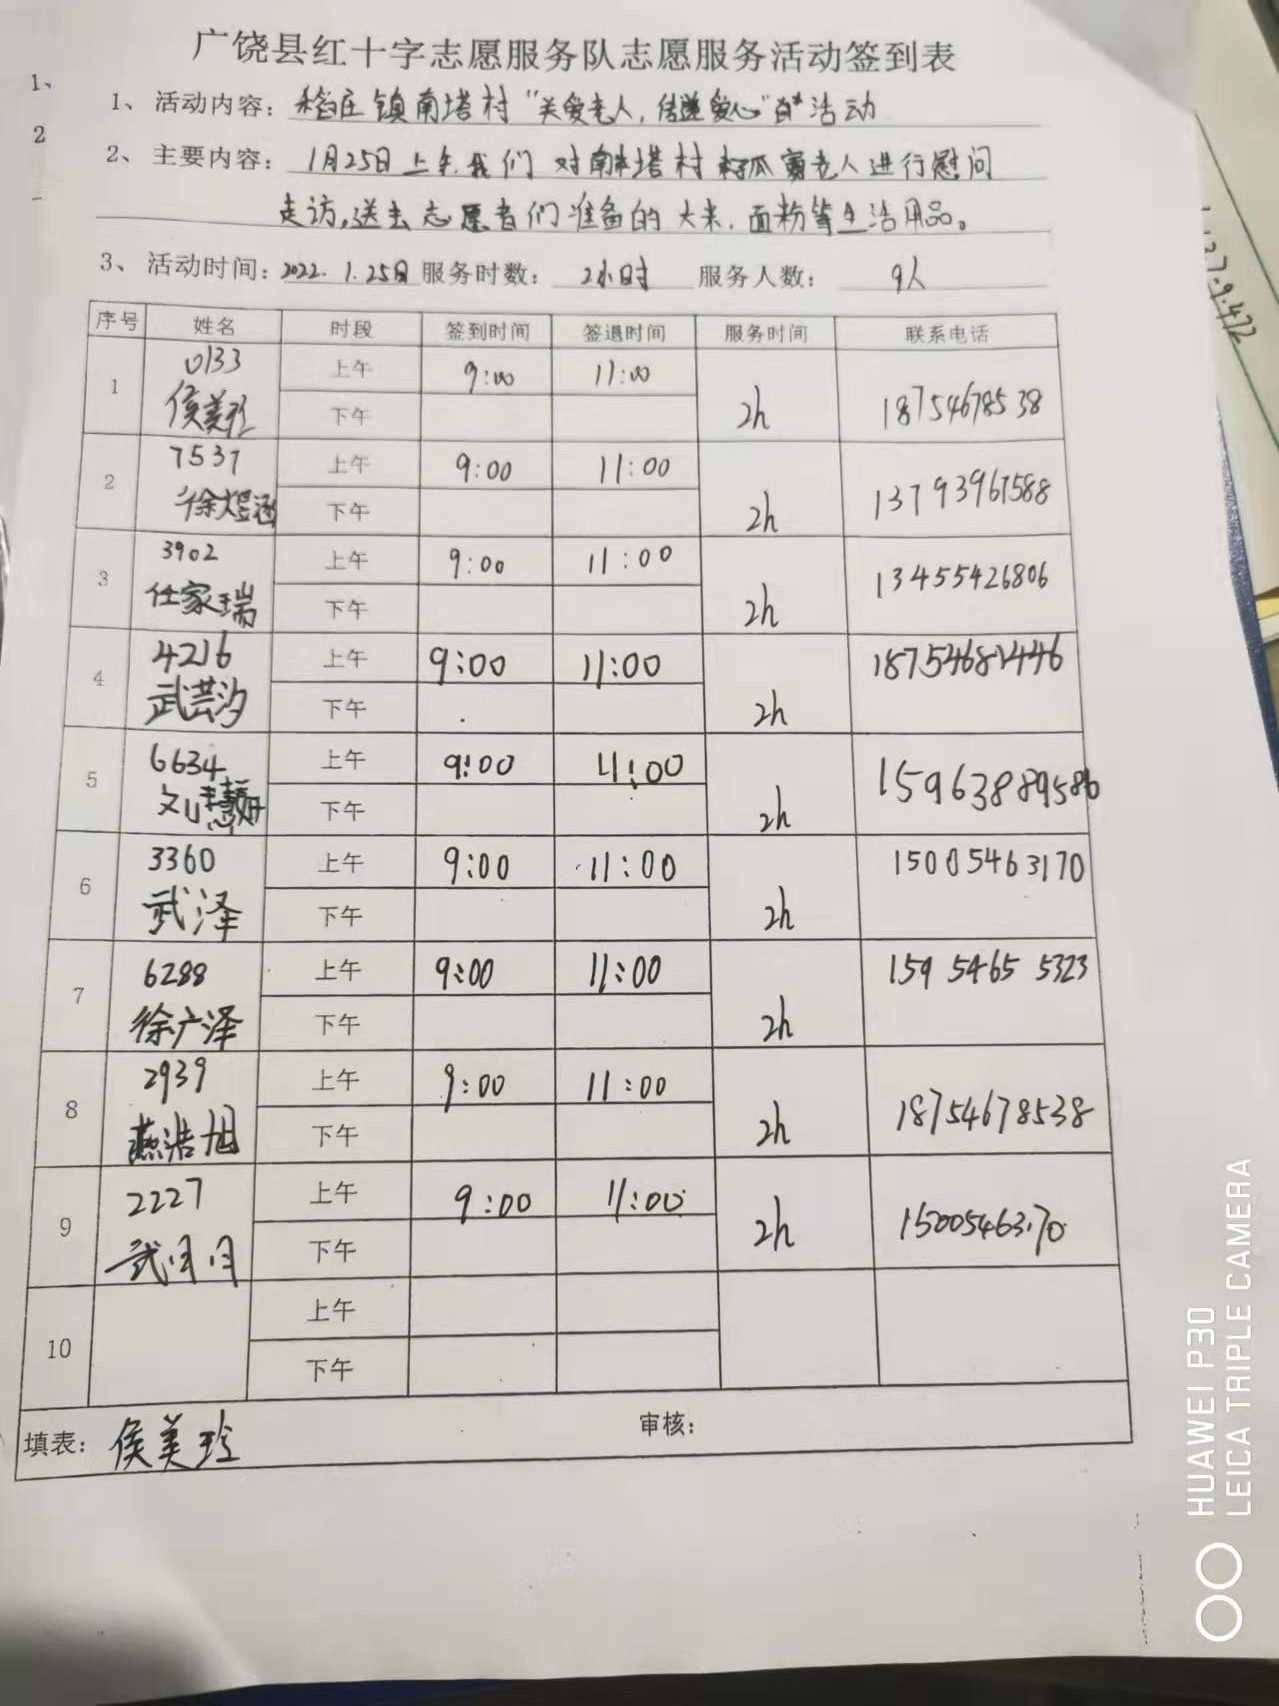 广饶县红十字志愿服务队志愿服务活动签到表
1、
1、活动内容：稻庄镇南塔村“关爱老人，传递爱心”活动
2
2、主要内容：1月25日上午.我们对南塔村孤寡老人进行慰问
走访,送去志愿者们准备的大米.面粉等生活用品。
3、活动时间：2022.1.25日 服务时数：2小时 服务人数：9人
序号 姓名 时段 签到时间 签退时间 服务时间 联系电话
1 0133 侯美玲 上午 9:00 11:00 2h 18754678538
下午
2 7537 徐煜涵 上午 9:00 11:00 2h 13793961588
下午
3 3902 任家瑞 上午 9:00 11:00 2h 13455426806
下午
4 4216 武芸汐 上午 9:00 11:00 2h
下午
5 6634 上午 9:00 11:00 2h 15963889586
下午
6 3360 武泽 上午 9:00 11:00 2h 15005463170
下午
7 6288 徐广泽 上午 9:00 11:00 2h 159 5465 5323
下午
8 2939 燕浩旭 上午 9:00 11:00 2h 18754678538
下午
9 2227 武月月 上午 9:00 11:00 2h 15005463170
下午
10 上午
下午
填表：侯美玲 审核：
HUAWEI P30
LEICA TRIPLE CAMERA